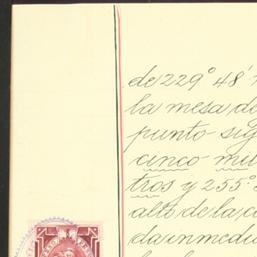 de 229° 48'
la mesa de
punto sig
cinco mu
tros y 255°
alto de la c
da inmedi